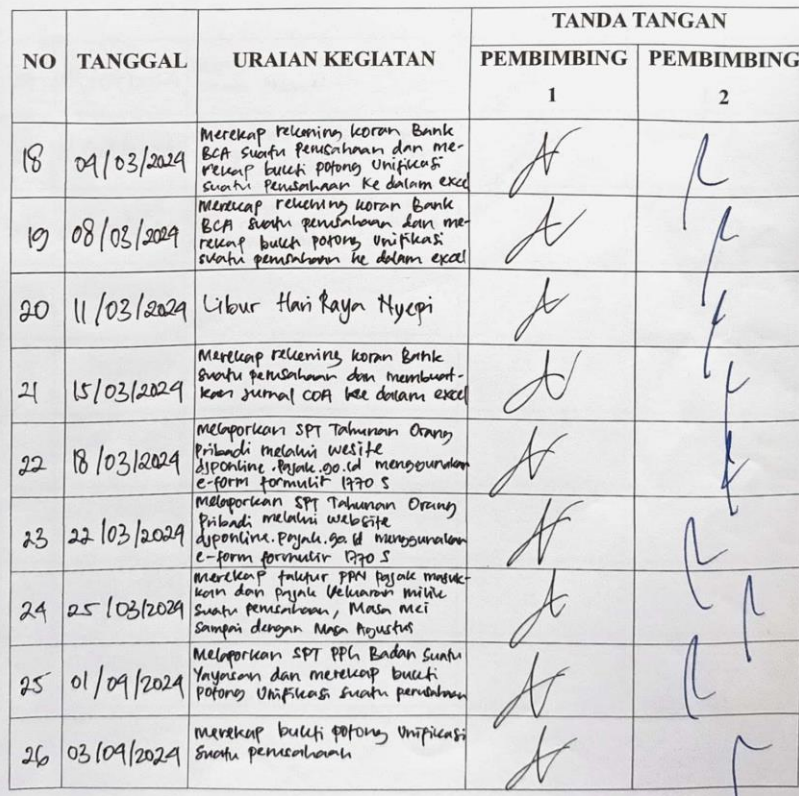 NO
TANGGAL
URAIAN KEGIATAN
TANDA TANGAN
PEMBIMBING
1
PEMBIMBING
2
18
04/03/2024
Merekap rekening koran Bank
BCA suatu perusahaan dan me-
rekap bukti potong Unifikasi
suatu perusahaan ke dalam excel
19
08/03/2024
Merekap rekening koran Bank
BCA suatu perusahaan dan me-
rekap bukti potong Unifikasi
suatu perusahaan ke dalam excel
20
11/03/2024
Libur Hari Raya Nyepi
21
15/03/2024
Merekap rekening koran Bank
suatu perusahaan dan membuat-
kan jurnal COA ke dalam excel
22
18/03/2024
Melaporkan SPT Tahunan Orang
Pribadi melalui wesite
djponline.pajak.go.id menggunakan
e-form formulir 1770 S
23
22/03/2024
Melaporkan SPT Tahunan Orang
Pribadi melalui website
djponline.pajak.go.id menggunakan
e-form formulir 1770 S
24
25/03/2024
Merekap faktur PPN pajak masuk-
kan dan pajak keluaran milik
suatu perusahaan, Masa Mei
sampai dengan Masa Agustus
25
01/04/2024
Melaporkan SPT PPh Badan Suatu
Yayasan dan merekap bukti
potong Unifikasi suatu perusahaan
26
03/04/2024
Merekap bukti potong Unifikasi
suatu perusahaan